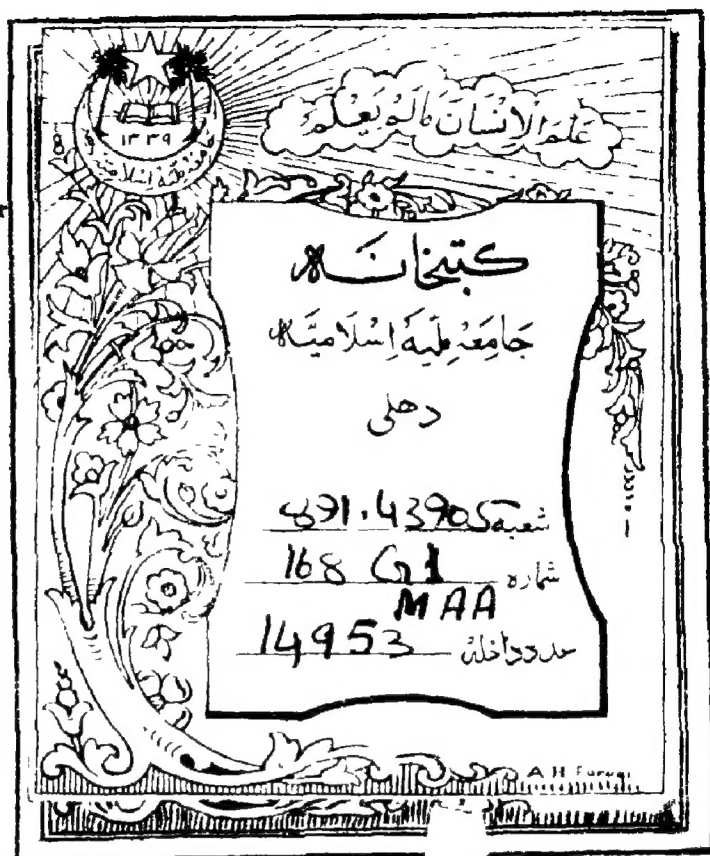 عَلَّمَ الْإِنْسَانَ مَا لَمْ يَعْلَمْ
۱۳۳۹
جامعہ ملیہ اسلامیہ
کتبخانہ
جَامِعَہ مِلّیَہ اِسْلَامیَّہ
دھلی
شعبہ 891.43905
شمارہ 168 G1
MAA
عدد داخلہ 14953
A H Faruqi